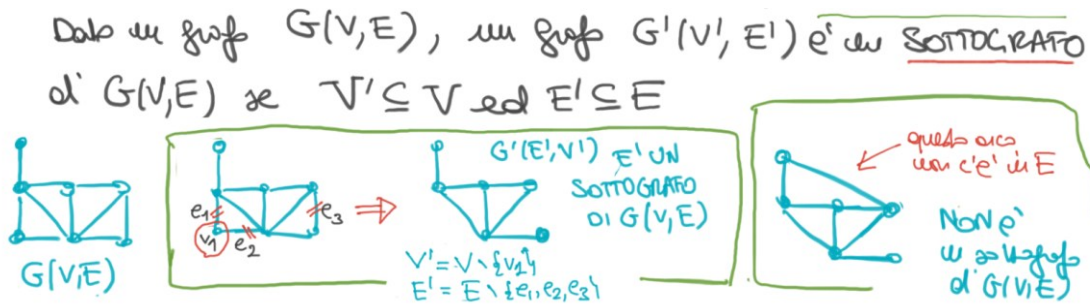 Dato un grafo G(V,E), un grafo G'(V', E') e' un SOTTOGRAFO
di G(V,E) se V' ⊆ V ed E' ⊆ E
G(V,E)
e1
v1
e2
e3
G'(E',V') E' UN
SOTTOGRAFO
DI G(V,E)
V' = V \ {v1}
E' = E \ {e1, e2, e3}
questo arco
non c'e' in E
NON e'
un sottografo
di G(V,E)